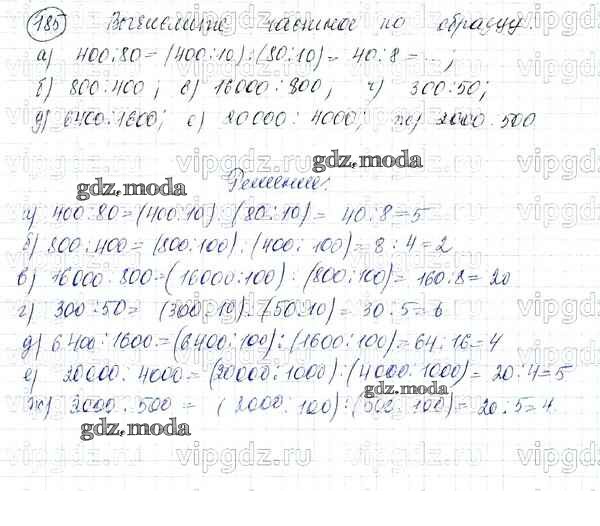 185 Вычислите частное по образцу.
а) 400:80=(400:10):(80:10)=40:8=...,
б) 800:400; в) 16000:800, г) 300:50;
д) 6400:1600; е) 20000:4000; ж) 2000:500
gdz.moda
gdz.moda Решение.
а) 400:80=(400:10):(80:10)=40:8=5
б) 800:400=(800:100):(400:100)=8:4=2
в) 16000:800=(16000:100):(800:100)=160:8=20
г) 300:50=(300:10):(50:10)=30:5=6
д) 6400:1600=(6400:100):(1600:100)=64:16=4
е) 20000:4000=(20000:1000):(4000:1000)=20:4=5
gdz.moda
ж) 2000:500=(2000:100):(500:100)=20:5=4
gdz.moda
vipgdz.ru